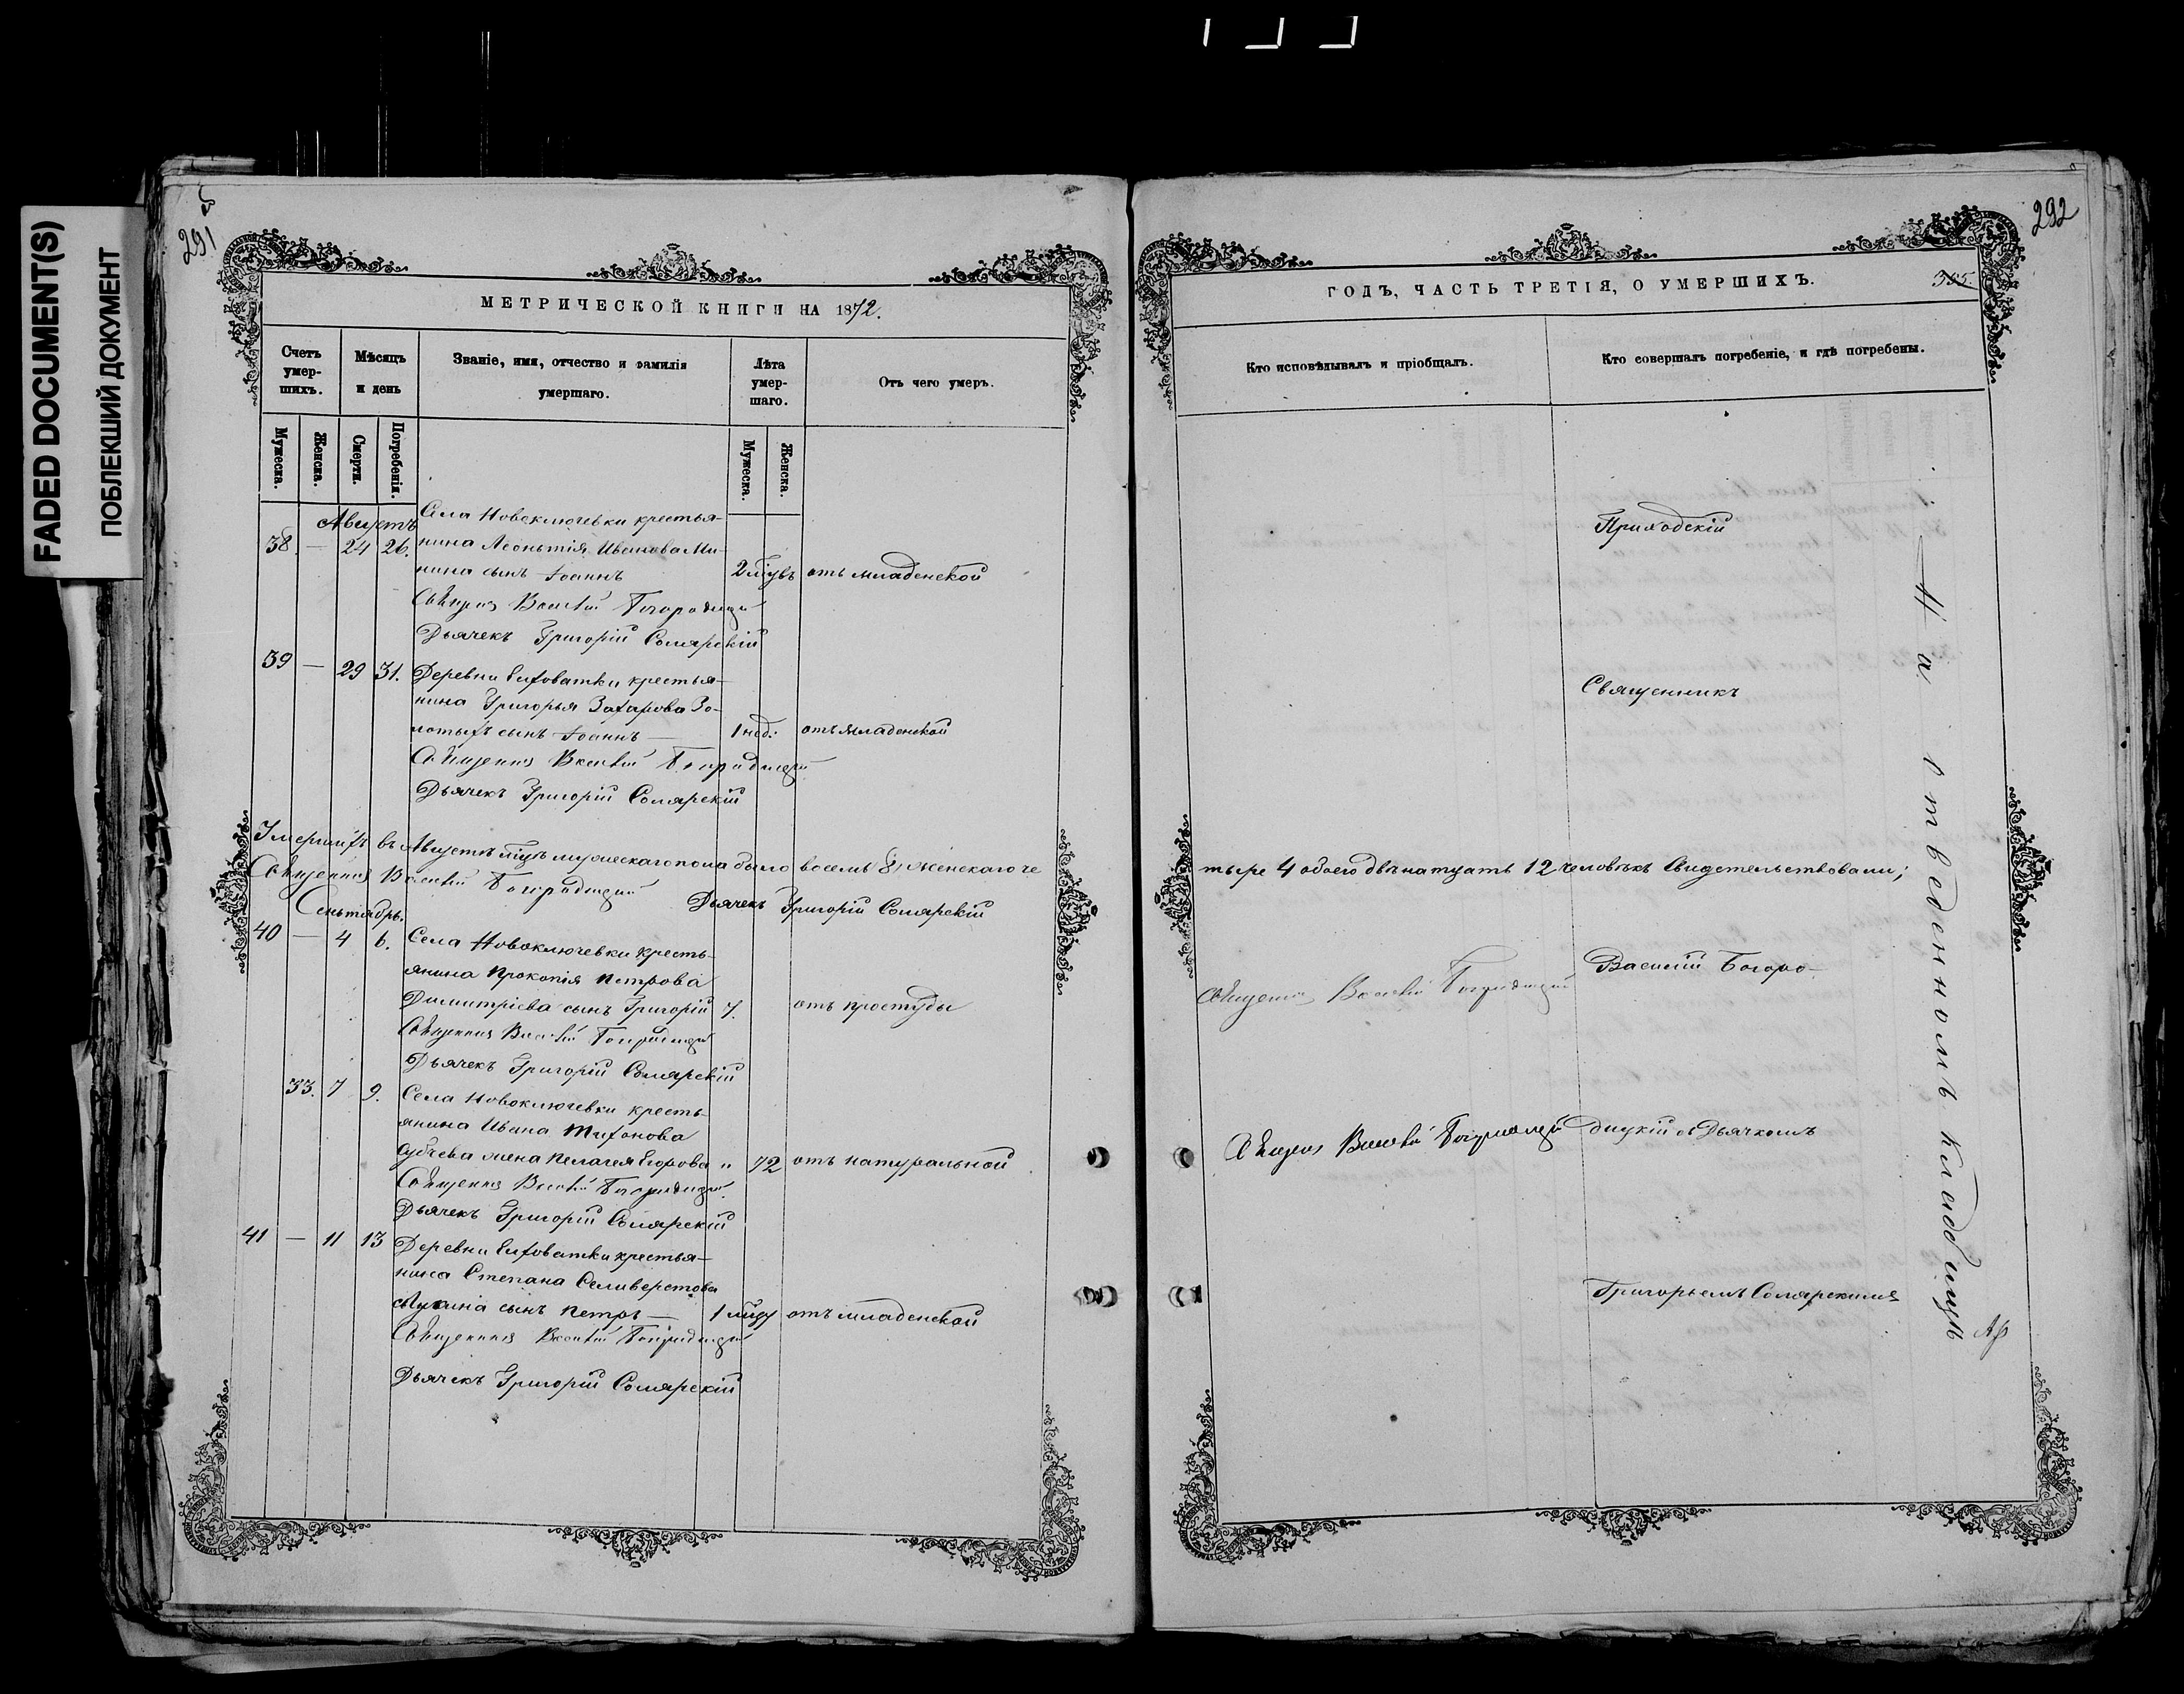 FADED DOCUMENT(S)
ПОБЛЕКШИЙ ДОКУМЕНТ
291
МЕТРИЧЕСКОЙ КНИГИ НА 1872.
Счетъ умер-шихъ.
Мѣсяцъ и день
Званіе, имя, отчество и фамилія умершаго.
Лѣта умер-шаго.
Отъ чего умеръ.
Мужеска.
Женска.
Смерти.
Погребенія.
Мужеска.
Женска.
Августъ
Села Новоключевки крестья-
38 — 24 26. нина Леонтія Иванова Ми-
нина сынъ Іоаннъ 2 отъ младенской
Священникъ Василій Богородицкій
Дьячекъ Григорій Солярскій
39 — 29 31. Деревни Ендоватки крестья-
нина Григорья Захарова Зо-
лотыхъ сынъ Іоаннъ — 1 нед: отъ младенской
Священникъ Василій Богородицкій
Дьячекъ Григорій Солярскій
Умершихъ въ Августѣ мцѣ мужескаго пола было восемь 8, женскаго че
Священникъ Василій Богородицкій
Дьячекъ Григорій Солярскій
Сентябрь.
40 — 4 6. Села Новоключевки кресть-
янина Прокопія Петрова
Димитріева сынъ Григорій 7. отъ простуды
Священникъ Василій Богородицкій
Дьячекъ Григорій Солярскій
33. 7 9. Села Новоключевки кресть-
янина Ивана
жена Пелагея Егорова „ 72 отъ натуральной
Священникъ Василій Богородицкій
Дьячекъ Григорій Солярскій
41 — 11 13 Деревни Ендоватки крестья-
нина Степана Селиверстова
сынъ Петръ — 1 отъ младенской
Священникъ Василій Богородицкій
Дьячекъ Григорій Солярскій
292
ГОДЪ, ЧАСТЬ ТРЕТІЯ, О УМЕРШИХЪ.
Кто исповѣдывалъ и пріобщалъ.
Кто совершалъ погребеніе, и гдѣ погребены.
Приходскій
Священникъ
тыре 4 обоего двѣнатцать 12 человѣкъ Свидетельствовали;
Василій Богоро-
Священникъ Василій Богородицкій
Священникъ Василій Богородицкій
дицкій съ Дьячкомъ
Григорьемъ Солярскимъ
На отведенномъ кладбищѣ